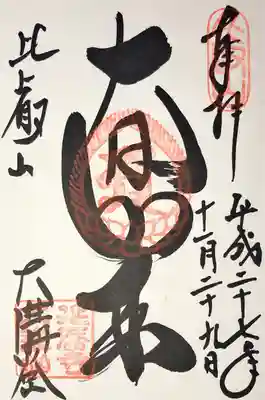 奉拝
平成二十七年
十一月二十九日
大日如来
比叡山
大講堂